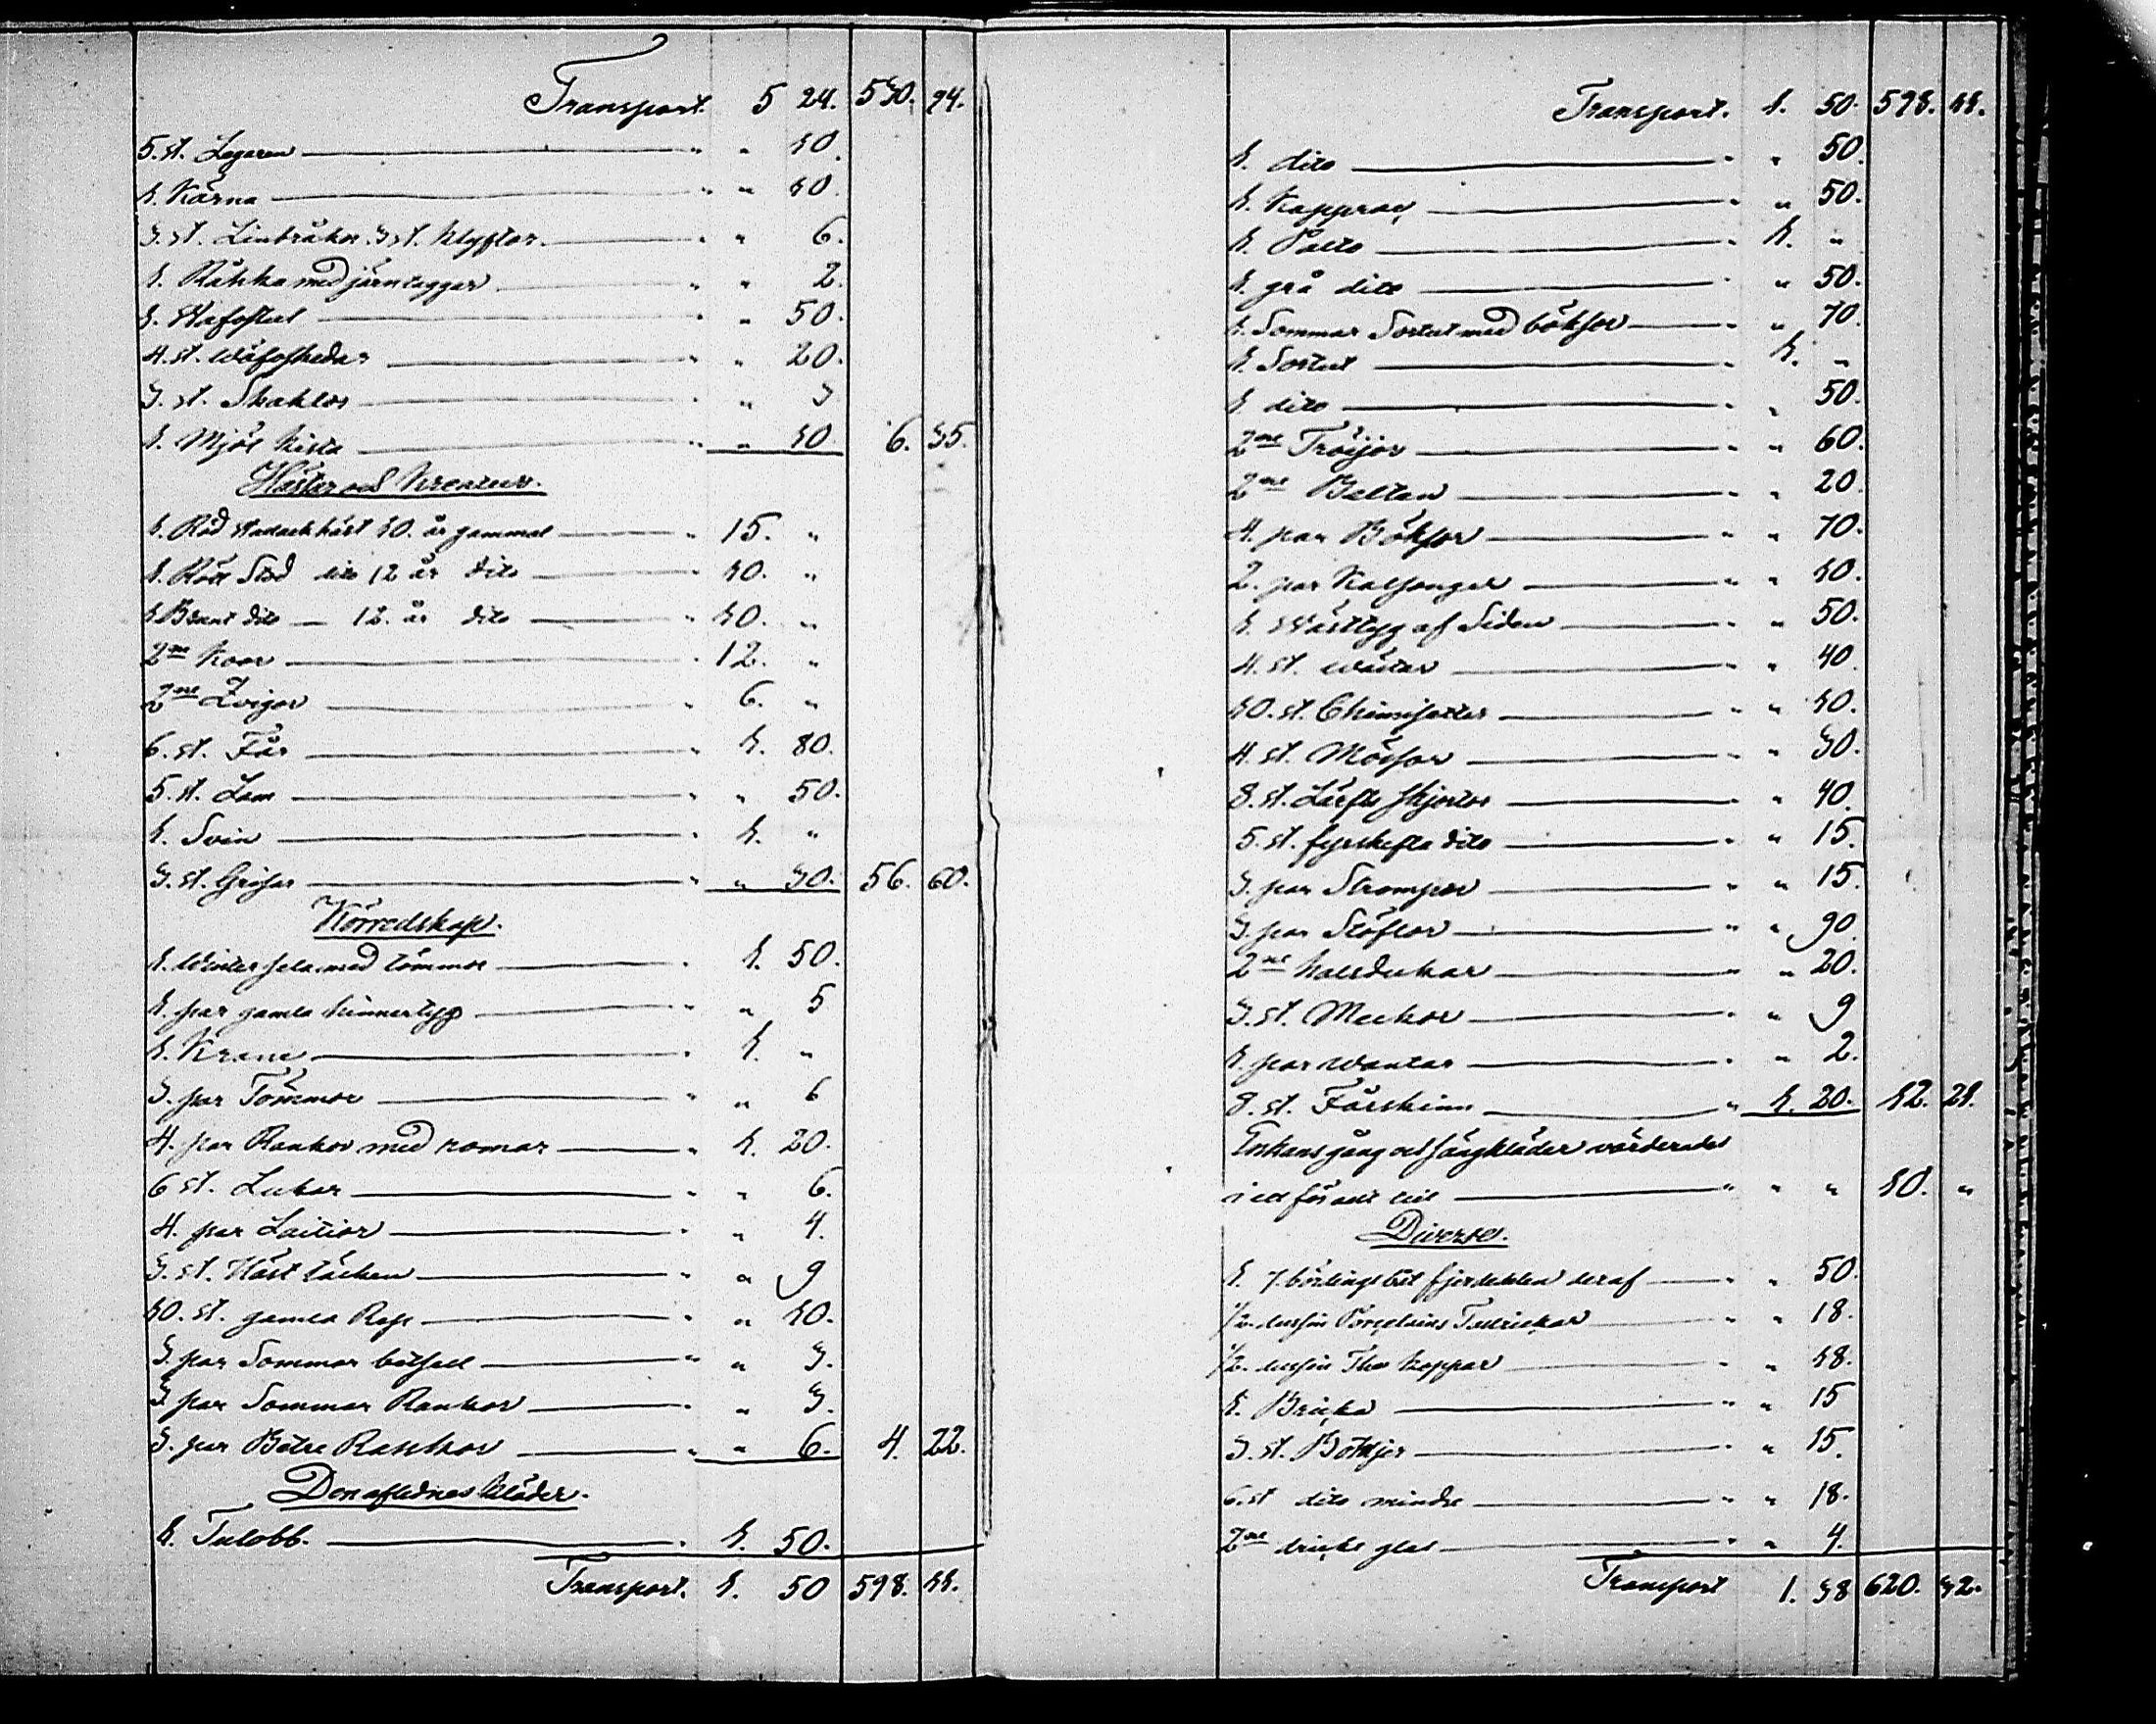 Transport. 5 24. 530. 94.
5. st. Legaren " " 10.
1. Kärna " " 10.
3. st. Linbråkor. 3 st. Klyftor. " " 6.
1. Räkka med järntaggar " " 2.
1. Wäfstol " " 50.
4. st. Wäfskedar " " 20.
3. st. Skaklor " " 3
1. Mjöl Kista " " 10 6. 35.
Hästar och Kreatur.
1. Röd Wadackhäst 10. år gammal " 15. "
1. Rött Stod dito 12 år dito " 10. "
1 Brunt dito — 12. år dito " 10. "
2ne Koor " 12. "
2ne Qvigor " 6. "
6. st. Får " 1. 80.
5. st. Lam " " 50.
1. Svin " 1. "
3. st. Grisar " " 30. 56. 60.
Körredskap.
1. Winter sela med tömmar " 1. 50.
1. par gamla Skinnertyg " " 5
1. Krans " 1. "
3. par Tömmar " " 6
4. par Rankor med romar " 1. 20.
6 st. Lukor " " 6.
4. par Laitior " " 4.
3. st. Häst täcken " " 9
10. st. gamla Rep " " 10.
3. par Sommar betsell " " 3.
3 par Sommar Rankor " " 3.
3. par Bätre Rankor " " 6. 4. 22.
Den aflednes Kläder.
1. Tulobb. " 1. 50.
Transport. 1. 50 598. 11.
Transport. 1. 50. 598. 11.
1. dito " " 50.
1. Kapprock " " 50.
1. Palto " 1. "
1. grå dito " " 50.
1. Sommar Sortut med böksor " " 70.
1. Sortut " 1. "
1 dito " " 50.
2ne Tröijor " " 60.
2ne Bälten " " 20
4. par Böksor " " 70.
2. par Kalsonger " " 10.
1. Wästtyg af Siden " " 50.
4. st. Wästar " " 40.
10. st. Chemisetter " " 10.
4. st. Mössor " " 30.
8. st. Lärfts skjortor " " 40.
5. st. fyrskefta dito " " 15.
3. par Strumpor " " 15.
3. par Stöflor " " 90.
2ne halsdukar " " 20.
3. st. Muckor " " 9
1. par Wantar " " 2.
8. st. Fårskinn " 1. 20. 12. 21.
Enkans gång och sängkläder värderades
i ett för allt till " " " 10. "
Diverse.
1. 7. bördings båt fjerdedelen deraf " " 50.
1/2. dussin Porçelains Tallrickar " " 18.
1/2. dussin The Koppar " " 18.
1. Bricka " " 15
3. st. Bottljer " " 15.
6. st dito mindre " " 18.
2ne dricks glas " " 4.
Transport 1. 38 620. 32.